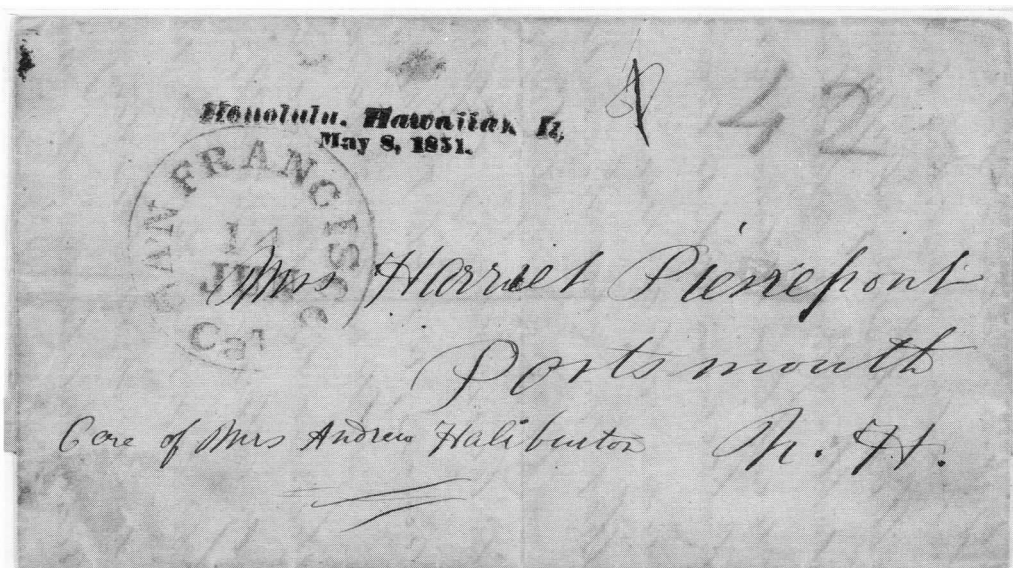 42
Honolulu. Hawaiian Is,
May 8, 1851.
SAN FRANCISCO
Cal
Mrs Harriet Pierrepont
Portsmouth
Care of Mrs Andrew Haliburton N. H.